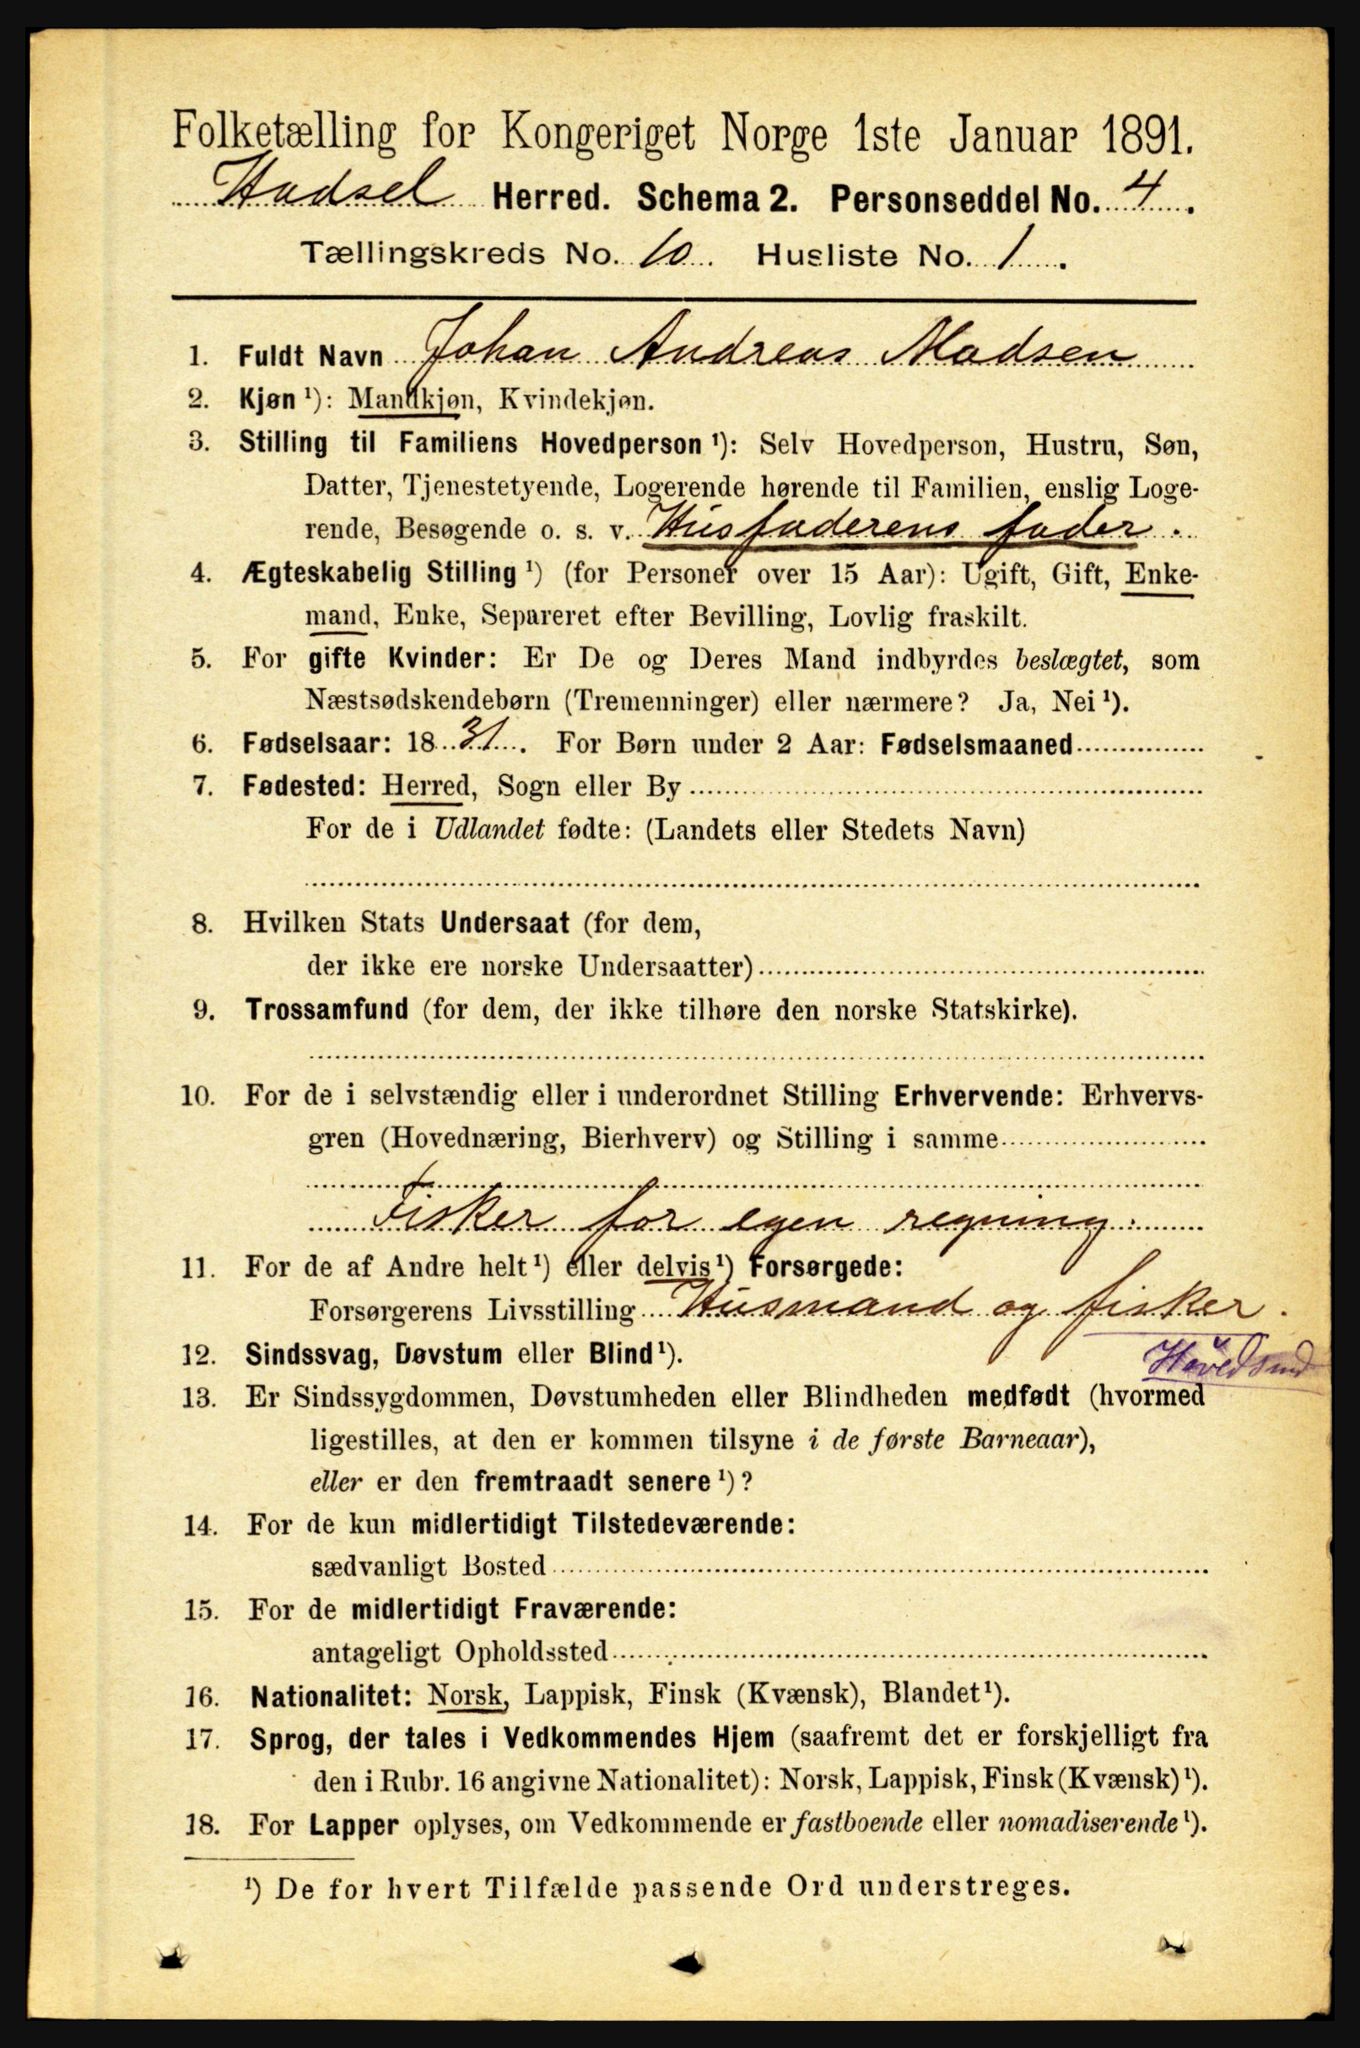 Folketælling for Kongeriget Norge 1ste Januar 1891.
Hadsel Herred. Schema 2. Personseddel No. 4.
Tællingskreds No. 10. Husliste No. 1.
1. Fuldt Navn Johan Andreas Madsen
2. Kjøn ¹): Mandkjøn, Kvindekjøn.
3. Stilling til Familiens Hovedperson ¹): Selv Hovedperson, Hustru, Søn,
Datter, Tjenestetyende, Logerende hørende til Familien, enslig Loge-
rende, Besøgende o. s. v. Husfaderens fader.
4. Ægteskabelig Stilling ¹) (for Personer over 15 Aar): Ugift, Gift, Enke-
mand, Enke, Separeret efter Bevilling, Lovlig fraskilt.
5. For gifte Kvinder: Er De og Deres Mand indbyrdes beslægtet, som
Næstsødskendebørn (Tremenninger) eller nærmere? Ja, Nei ¹).
6. Fødselsaar: 1831. For Børn under 2 Aar: Fødselsmaaned
7. Fødested: Herred, Sogn eller By
For de i Udlandet fødte: (Landets eller Stedets Navn)
8. Hvilken Stats Undersaat (for dem,
der ikke ere norske Undersaatter)
9. Trossamfund (for dem, der ikke tilhøre den norske Statskirke).
10. For de i selvstændig eller i underordnet Stilling Erhvervende: Erhvervs-
gren (Hovednæring, Bierhverv) og Stilling i samme
Fisker for egen regning.
11. For de af Andre helt ¹) eller delvis ¹) Forsørgede:
Forsørgerens Livsstilling Husmand og fisker.
12. Sindssvag, Døvstum eller Blind ¹).
13. Er Sindssygdommen, Døvstumheden eller Blindheden medfødt (hvormed
ligestilles, at den er kommen tilsyne i de første Barneaar),
eller er den fremtraadt senere ¹)?
14. For de kun midlertidigt Tilstedeværende:
sædvanligt Bosted
15. For de midlertidigt Fraværende:
antageligt Opholdssted
16. Nationalitet: Norsk, Lappisk, Finsk (Kvænsk), Blandet ¹).
17. Sprog, der tales i Vedkommendes Hjem (saafremt det er forskjelligt fra
den i Rubr. 16 angivne Nationalitet): Norsk, Lappisk, Finsk (Kvænsk) ¹).
18. For Lapper oplyses, om Vedkommende er fastboende eller nomadiserende ¹).
¹) De for hvert Tilfælde passende Ord understreges.